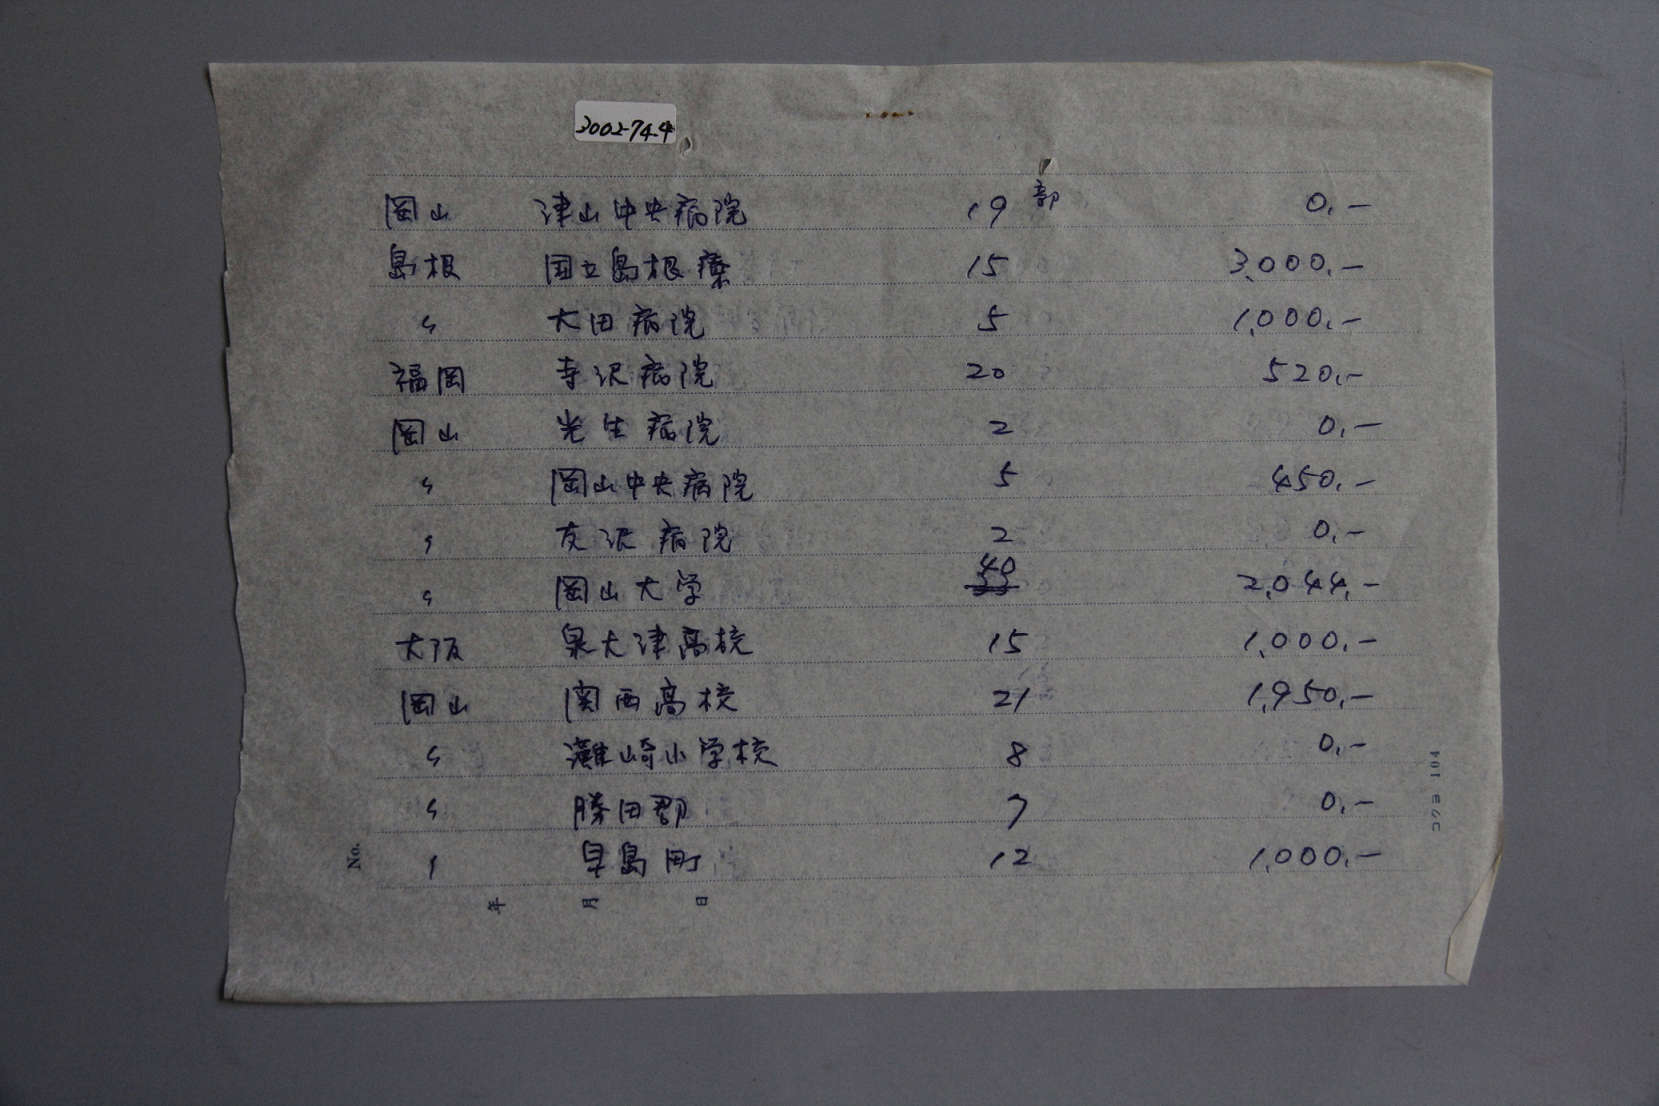 3002-74-4
岡山 津山中央病院 19部 0.-
島根 国立島根療 15 3,000.-
〃 大田病院 5 1,000.-
福岡 寺沢病院 20 520.-
岡山 光生病院 2 0.-
〃 岡山中央病院 5 450.-
〃 友沢病院 2 0.-
〃 岡山大学 40 2,044.-
大阪 泉大津高校 15 1,000.-
岡山 関西高校 21 1,950.-
〃 灘崎小学校 8 0.-
〃 勝田郡 7 0.-
〃 早島町 12 1,000.-
No.
年 月 日
コクヨ 104